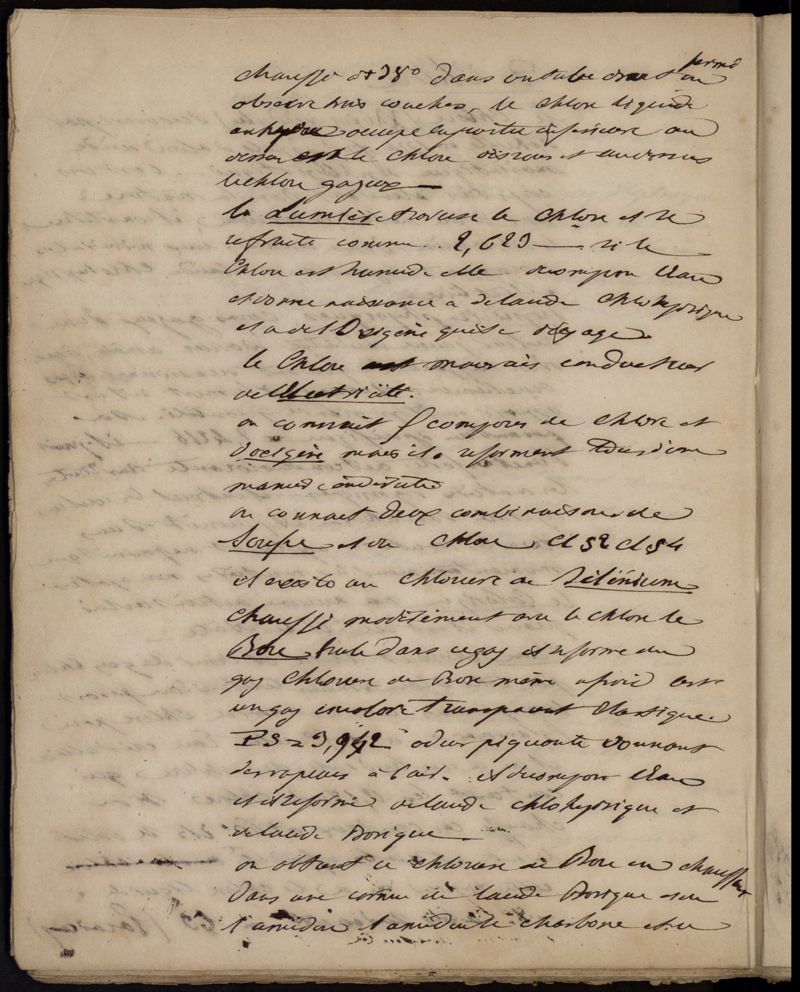 chauffé a +38° dans un tube fermé on
observe trois couches, le chlore liquide
anhydre occupe la partie inferieure au
dessus est le chlore dissous et au dessus
le chlore gazeux
la Lumière traverse le chlore et se
refracte comme 2,623 si le
chlore est humide elle decompose l'eau
et donne naissance a de l'acide chlohydrique
et a de l'Oxigène qui se dégage
le Chlore est mauvais conducteur
de l'électricité.
on connait 5 composés de chlore et
d'oxigène mais ils se forment tous d'une
maniere indirecte
on connait deux combinaisons de
Soufre et du chlore Cl S2 Cl S4
il existe un chlorure de Sélénium
chauffé modérément avec le chlore le
Bore brule dans ce gaz il se forme un
gaz chlorure de Bore même a froid c'est
un gaz incolore transparent élastique
PS = 3,942 odeur piquante donnant
des vapeurs à l'air. il decompose l'eau
et il se forme de l'acide chlohydrique et
de l'acide Borique
on obtient ce chlorure de Bore en chauffant
dans une cornue de l'acide Borique et de
l'amidon l'amidon se charbone et